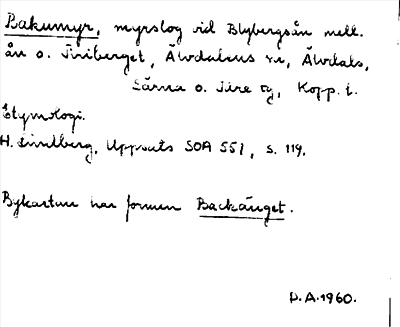 Bakumyr, myrslog vid Blybergsån mell.
ån o. Firiberget, Älvdalens sn, Älvdals,
Särna o. Idre tg, Kopp. l.
Etymologi.
H. Lindberg, Uppsats SOA 551, s. 119.
Bykartan har formen Backänget.
D.A. 1960.